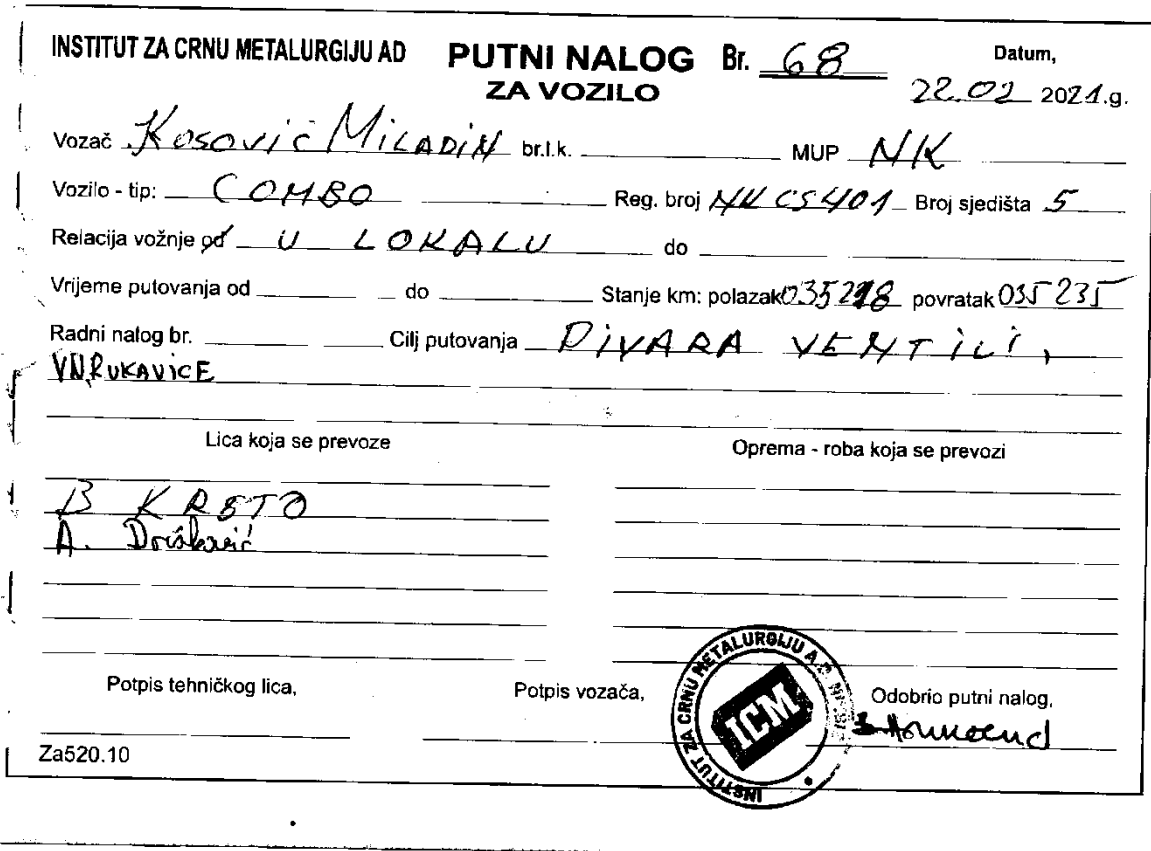 INSTITUT ZA CRNU METALURGIJU AD PUTNI NALOG Br. 68 Datum,
ZA VOZILO 22.02 2021.g.
Vozač Kosović MiLADiN br.l.k. MUP NK
Vozilo - tip: COMBO Reg. broj NK CS401 Broj sjedišta 5
Relacija vožnje od U LOKALU do
Vrijeme putovanja od do Stanje km: polazak 035218 povratak 035235
Radni nalog br. Cilj putovanja PiVARA VENTiLi,
VN.RUKAVICE
Lica koja se prevoze Oprema - roba koja se prevozi
B KRSTO
A. Drišković
Potpis tehničkog lica, Potpis vozača, Odobrio putni nalog,
INSTITUT ZA CRNU METALURGIJU A.D.
ICM
Za520.10